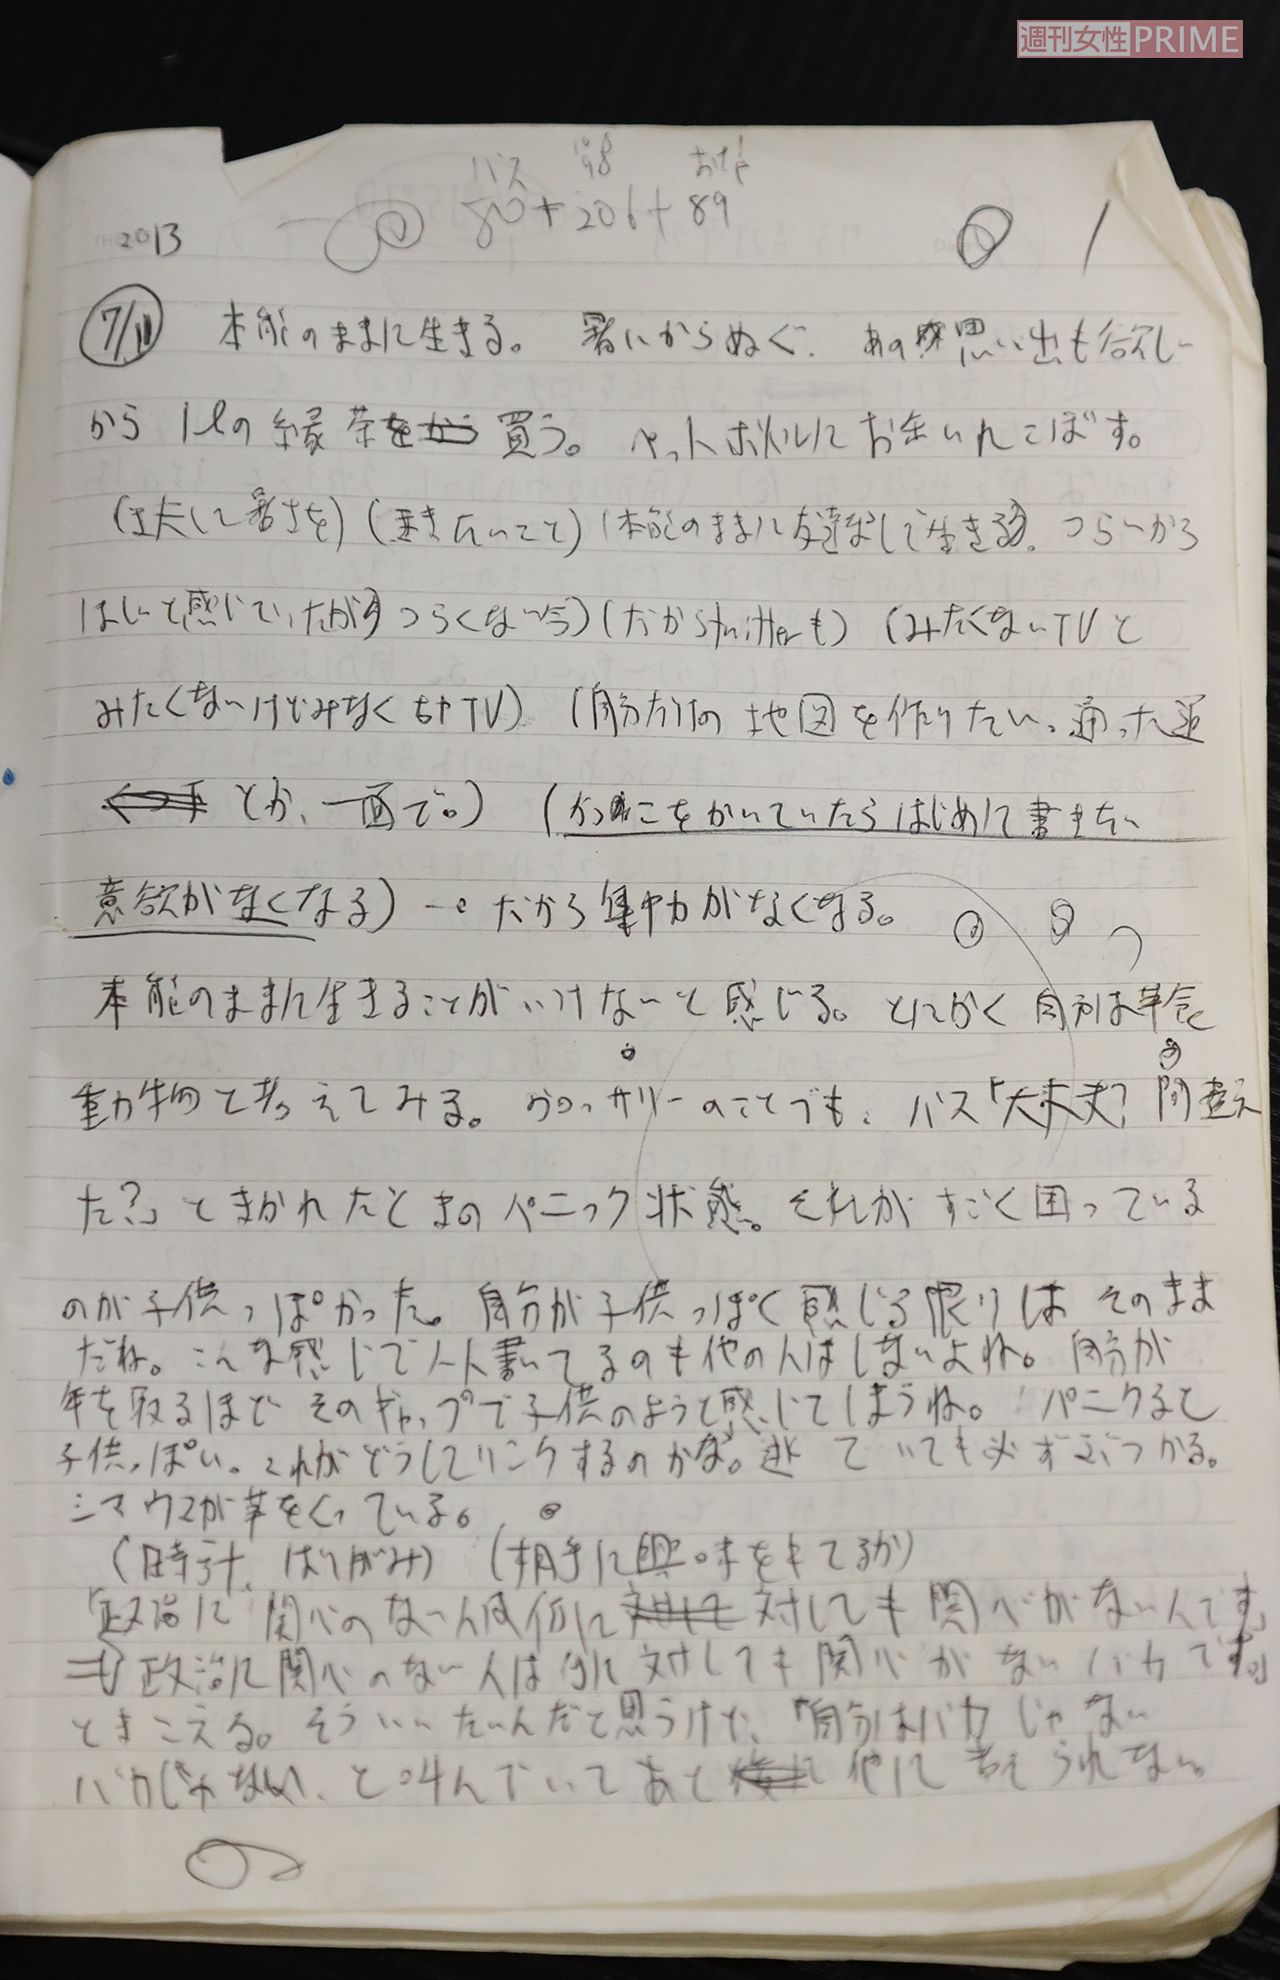 週刊女性PRIME
バス
80+206+89
2013
1
7/11 本能のままに生きる。暑いからぬぐ。あの思い出も欲しい
から 1ℓの緑茶を買う。ペットボトルにお茶いれこぼす。
(工夫して暑さを) (書きたいこと) (本能のままに 生きる。つらいから
ほしいと感じていたが つらくない今) (だからtwitterも) (みたくないTVと
みたくないけどみなくちゃTV) (自分だけの地図を作りたい。通った道
とか、一面で。) (かっこをかいていたらはじめて書きたい
意欲がなくなる) だから集中力がなくなる。
本能のままに生きることがいけないと感じる。とにかく自分は草食
動物と考えてみる。グロッサリーのことでも、バス「大丈夫? 間違え
た?」ときかれたときのパニック状態。それがすごく困っている
のが子供っぽかった。自分が子供っぽく感じる限りは そのまま
だね。こんな感じで一人書いてるのも他の人はしないよね。自分が
年を取るほど そのギャップで子供のようと感じてしまうね。 パニクると
子供っぽい。これがどうしてリンクするのかな。逃 ていても必ずぶつかる。
シマウマが草をくっている。
(時計、はりがみ) (相手に興味をもてるか)
「政治に関心のない人は何に対しても関心がない人です」
も 政治に関心のない人は何に対しても関心がないバカです」
ときこえる。そういいたいんだと思うけど、「自分はバカじゃない
バカじゃない、と叫んでいてあと 他に考えられない。